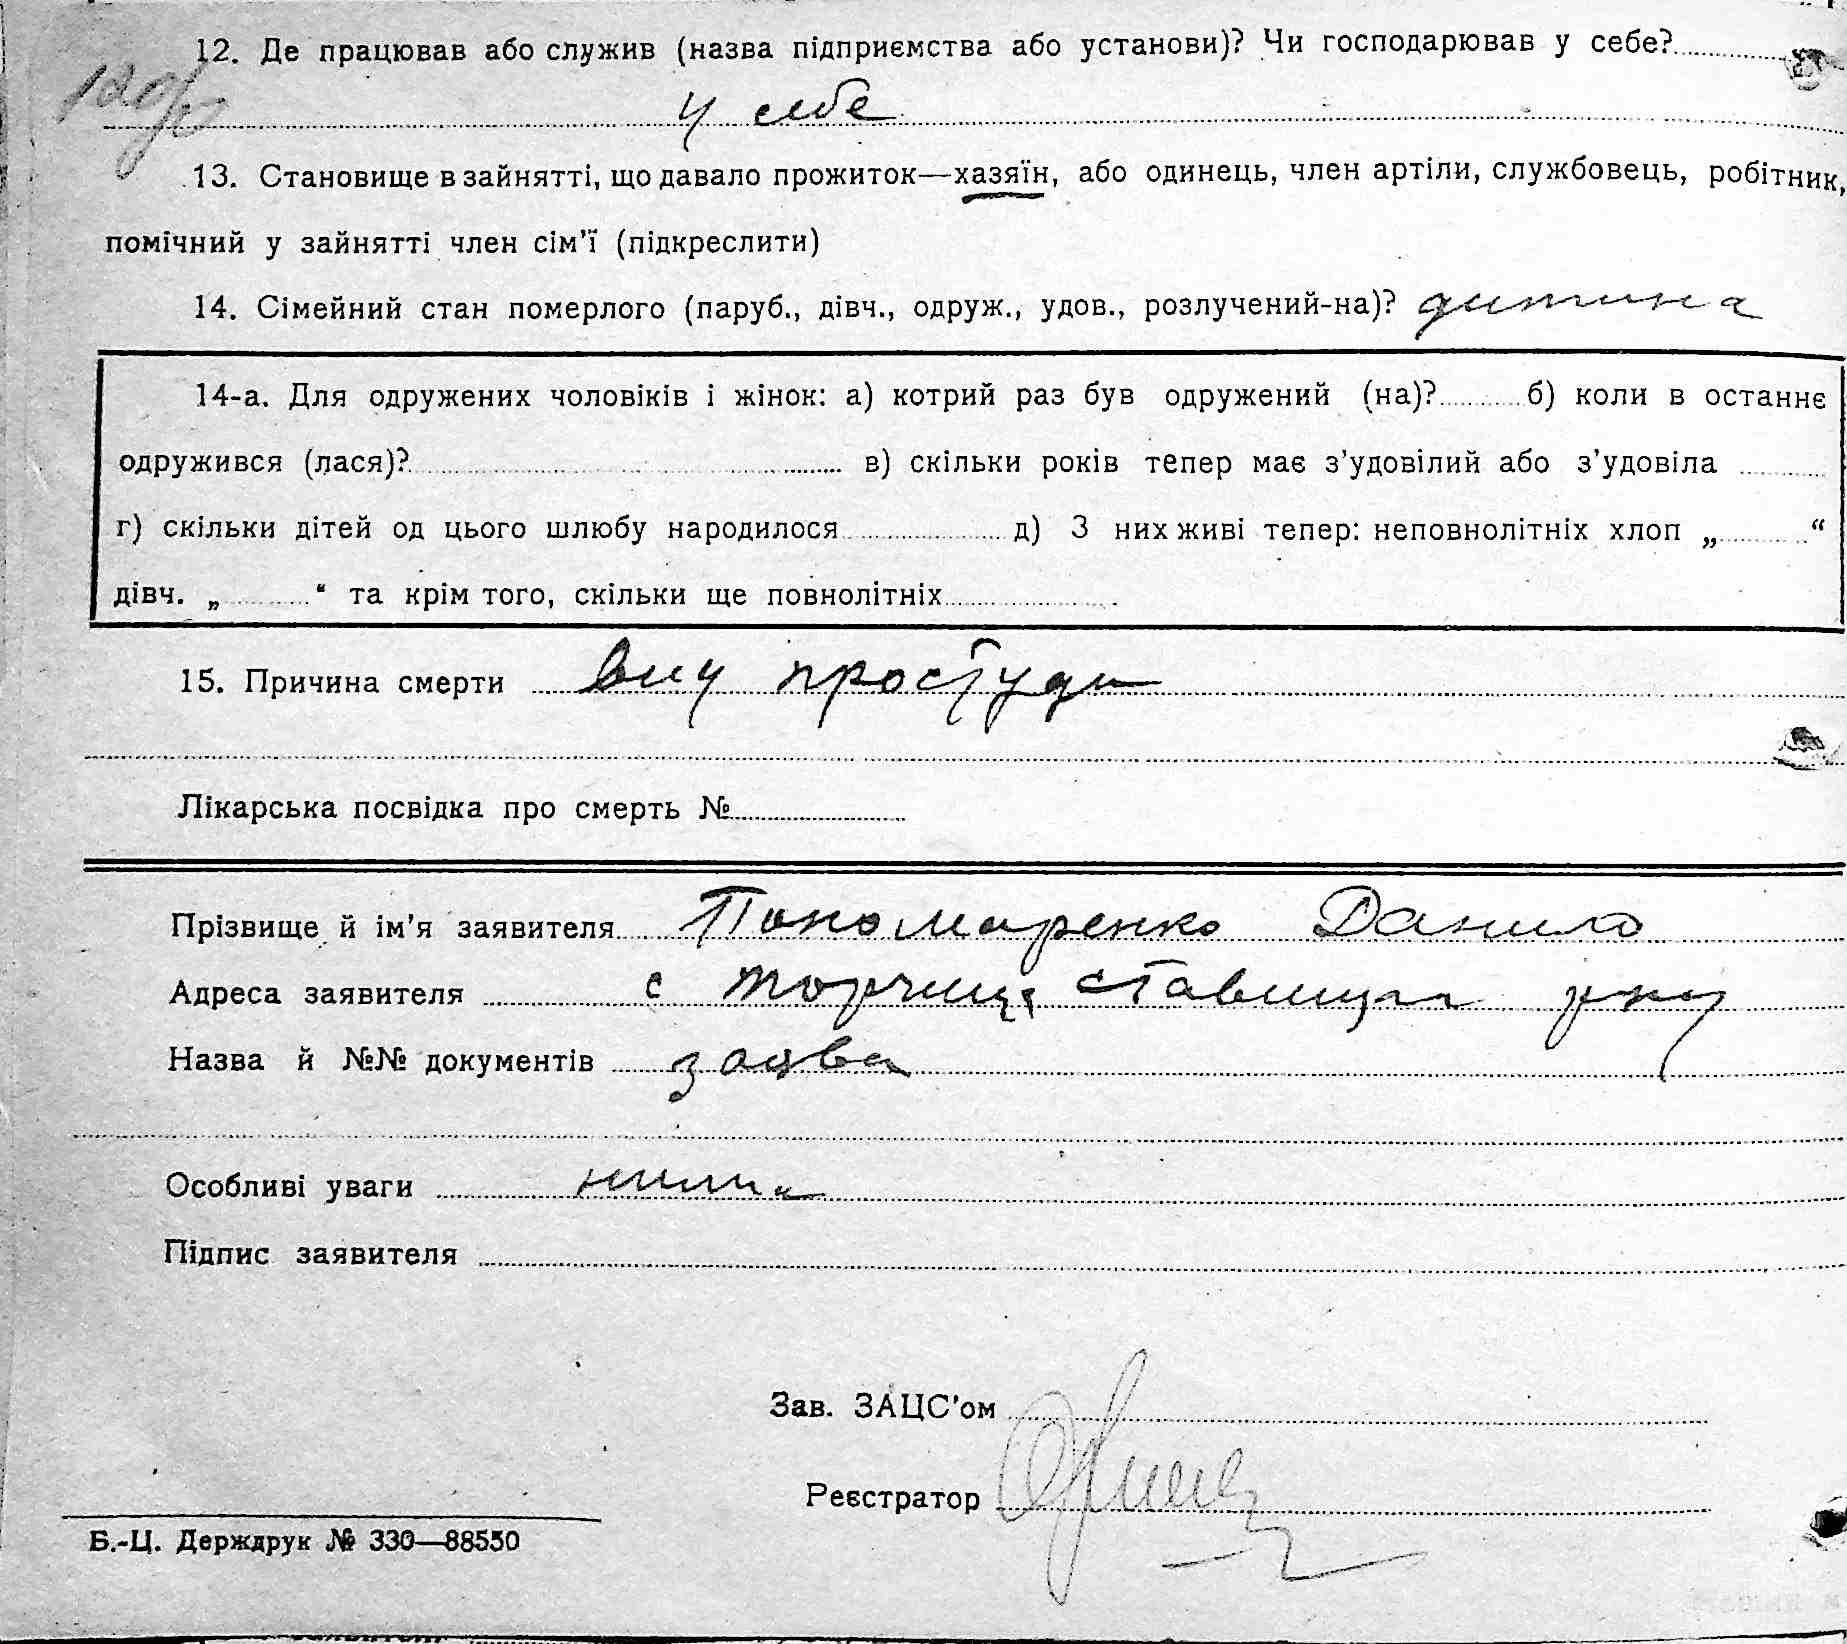 12. Де працював або служив (назва підприємства або установи)? Чи господарював у себе?
у себе
13. Становище в зайнятті, що давало прожиток—хазяїн, або одинець, член артіли, службовець, робітник,
помічний у зайнятті член сім'ї (підкреслити)
14. Сімейний стан померлого (паруб., дівч., одруж., удов., розлучений-на)? дитина
14-а. Для одружених чоловіків і жінок: а) котрий раз був одружений (на)? б) коли в останнє
одружився (лася)? в) скільки років тепер має з'удовілий або з'удовіла
г) скільки дітей од цього шлюбу народилося д) З них живі тепер: неповнолітніх хлоп „ “
дівч. „ “ та крім того, скільки ще повнолітніх
15. Причина смерти простуди
Лікарська посвідка про смерть №
Прізвище й ім'я заявителя Пономаренко Данило
Адреса заявителя с Торчиця Ставищан р-ну
Назва й №№ документів заява
Особливі уваги нима
Підпис заявителя
Зав. ЗАЦС'ом
Реєстратор
Б.-Ц. Держдрук № 330—88550